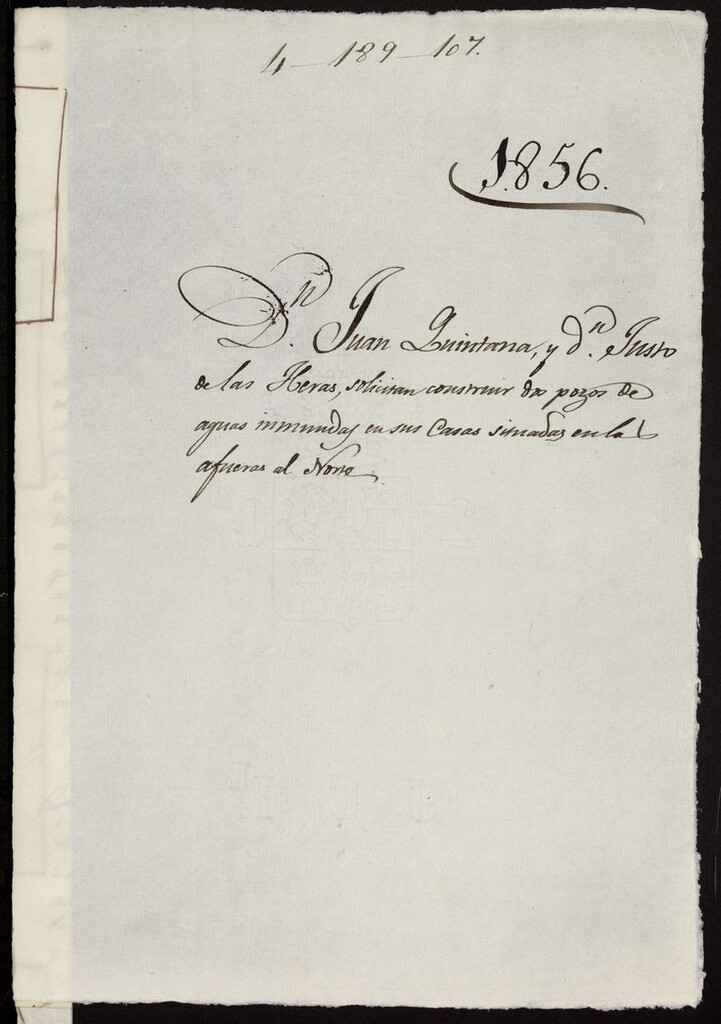 4-189-107.
1.856.
Dn. Juan Quintana, y dn. Justo
de las Heras, solicitan construir dos pozos de
aguas inmundas en sus Casas situadas en las
afueras al Norte